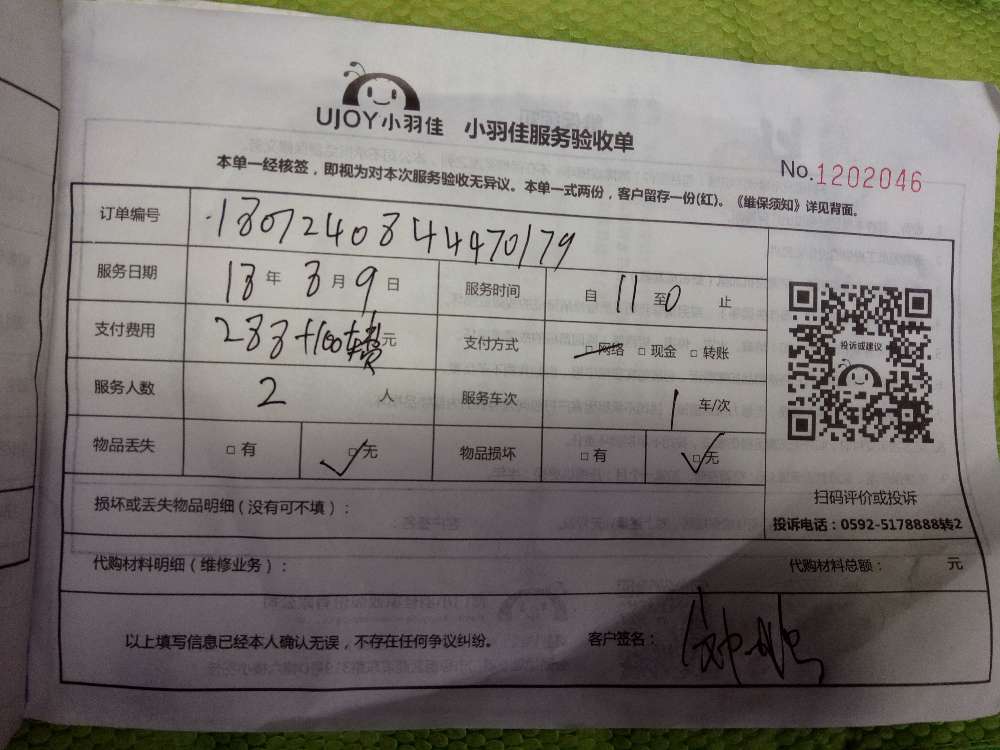 UJOY小羽佳 小羽佳服务验收单
No.1202046
本单一经核签，即视为对本次服务验收无异议。本单一式两份，客户留存一份(红)。《维保须知》详见背面。
订单编号 1807240844470179
服务日期 18 年 8 月 9 日 服务时间 自 11 至 0 止
支付费用 288+100 费 元 支付方式 □网络 □现金 □转账
服务人数 2 人 服务车次 1 车/次
物品丢失 □有 □无 物品损坏 □有 □无
投诉或建议
扫码评价或投诉
投诉电话：0592-5178888转2
损坏或丢失物品明细（没有可不填）：
代购材料明细（维修业务）： 代购材料总额： 元
以上填写信息已经本人确认无误，不存在任何争议纠纷。 客户签名：